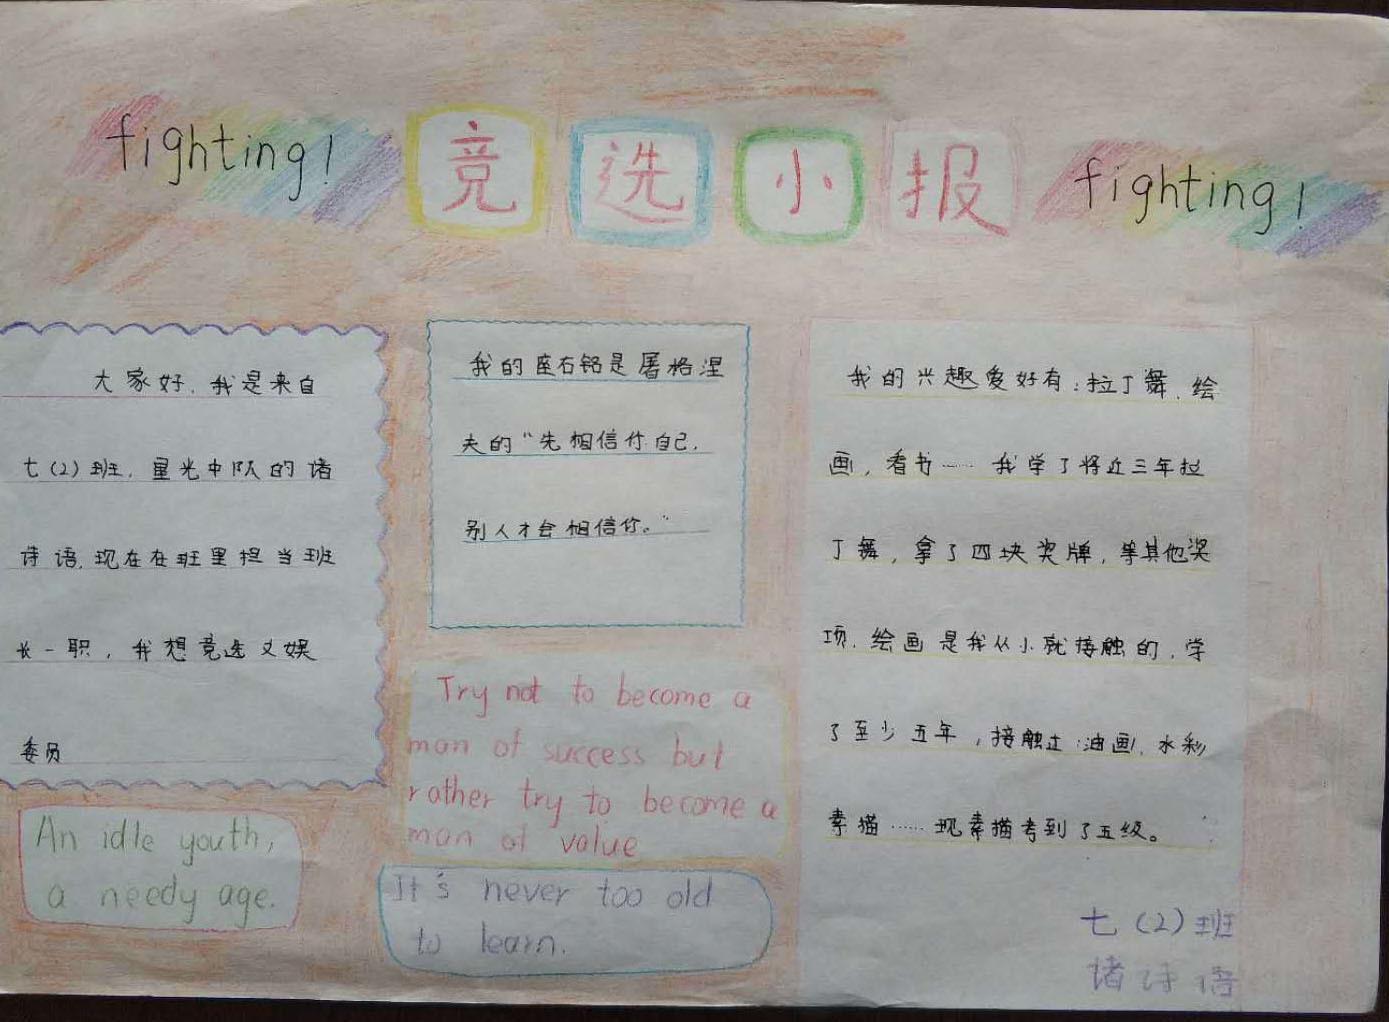 fighting!
竞选小报
fighting!
大家好,我是来自
七(2)班,星光中队的诸
诗语,现在在班里担当班
长一职,我想竞选文娱
委员
An idle youth,
a needy age.
我的座右铭是屠格涅
夫的“先相信你自己,
别人才会相信你。”
Try not to become a
man of success but
rather try to become a
man of value
It's never too old
to learn.
我的兴趣爱好有:拉丁舞、绘
画,看书……我学了将近三年拉
丁舞,拿了四块奖牌,等其他奖
项。绘画是我从小就接触的,学
了至少五年,接触过:油画、水彩
素描……现素描考到了五级。
七(2)班
诸诗语